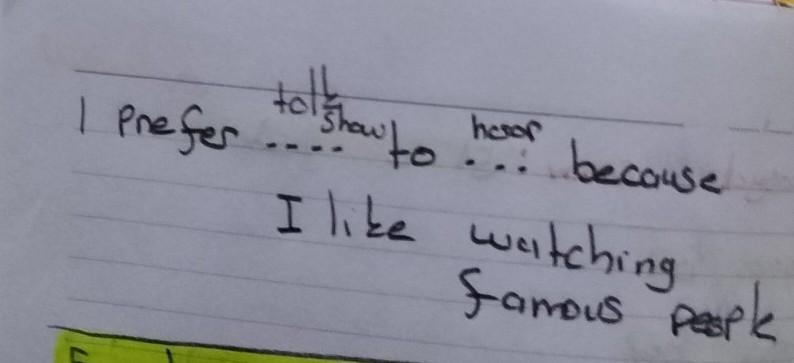 talk show horor
I prefer .... to ... because
I like watching
famous people